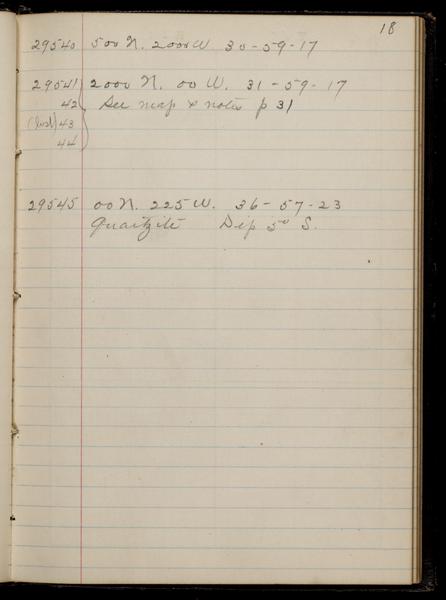 18
29540 500 N. 2000 W. 30-59-17
29541 2000 N. 00 W. 31-59-17
42 See map & notes p 31
(lost) 43
44
29545 00 N. 225 W. 36-57-23
Quartzite Dip 5° S.